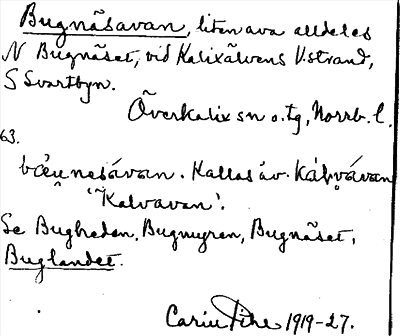 Bugnäsavan, liten ava alldeles
N Bugnäset, vid Kalixälvens V.strand,
S Svartbyn.
Överkalix sn o. tg, Norrb. l.
63.
Kallas äv.
'Kalvavan'.
Se Bugheden, Bugmyren, Bugnäset,
Buglandet.
Carin Pihl 1919-27.